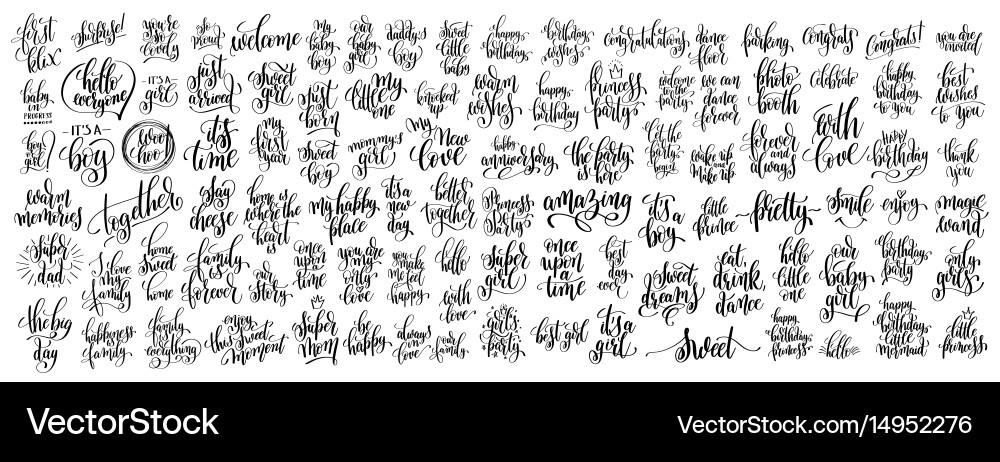 first klix
surprise!
you're so lovely
so proud
welcome
my baby boy
our baby girl
daddy's boy
sweet little baby
happy birthday
birthday wishes
congratulations
dance floor
parking
congrats
Congrats!
you are invited
baby in PROGRESS
hello everyone
-IT'S A- girl
just arrived
sweet girl
just born
my little one
knocked up
warm wishes
happy birthday
princess party
welcome to the party
we can dance forever
photo booth
celebrate
happy birthday to you
best wishes to you
boy or girl?
-IT'S A- boy
woo hoo
it's time
my first year
sweet boy
mommy's girl
my new love
happy anniversary
the party is here
let the party begin
wake up and make up
forever and always
with love
happy birthday
thank you
warm memories
together
say cheese
home is where the heart is
my happy place
it's a new day
better together
Princess Party
amazing
it's a boy
little prince
pretty
smile
enjoy
magic wand
super dad
I love my family
home sweet home
family is forever
our story
once upon a time
you are my only love
you make me feel happy
hello
super girl
once upon a time
best day ever
sweet dreams
eat, drink, dance
hello little one
our baby girl
birthday party
only girls
the big day
happiness is family
family is everything
enjoy this sweet moment
super mom
be happy
always in love
with love
our family
girls party
best girl
it's a girl
sweet
happy birthday, princess
hello
happy birthday, little mermaid
little princess
VectorStock®
VectorStock.com/14952276